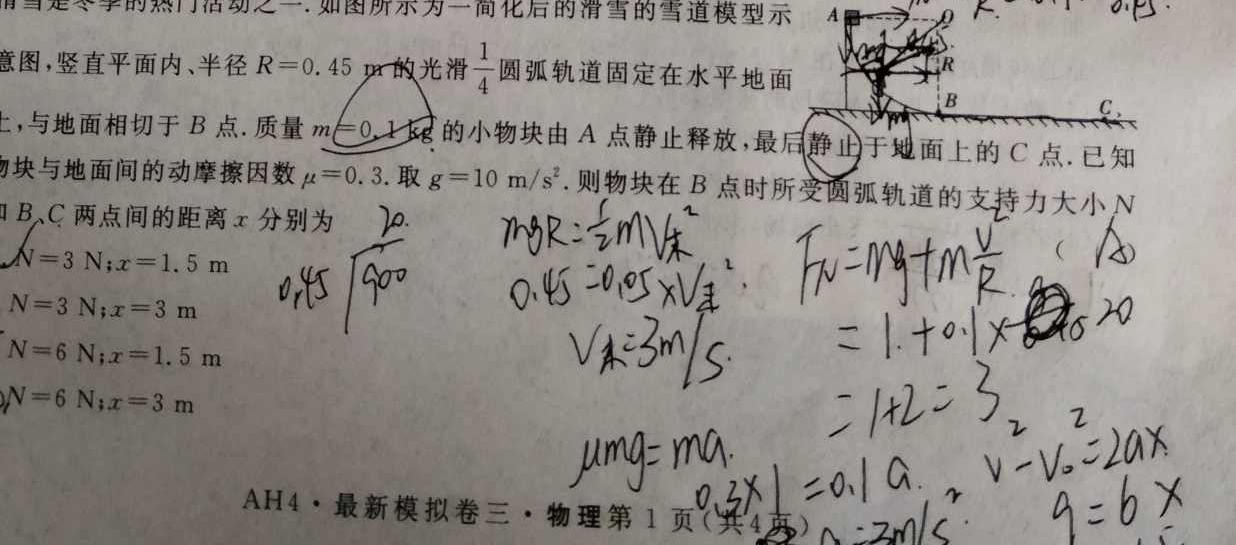 滑雪是冬季的热门活动之一.如图所示为一简化后的滑雪的雪道模型示
意图,竖直平面内、半径 R=0.45 m 的光滑 1/4 圆弧轨道固定在水平地面
上,与地面相切于 B 点.质量 m=0.1 kg 的小物块由 A 点静止释放,最后静止于地面上的 C 点.已知
物块与地面间的动摩擦因数 μ=0.3.取 g=10 m/s².则物块在 B 点时所受圆弧轨道的支持力大小 N
和 B、C 两点间的距离 x 分别为 ( A )
N=3 N;x=1.5 m
N=3 N;x=3 m
N=6 N;x=1.5 m
N=6 N;x=3 m
A
O
R
B
C
mg
20.
0.45 900
mgR=1/2mV末²
0.45=0.05×V末²
V末=3m/s.
FN=mg+m v²/R
=1.+0.1× 20
=1+2=3
μmg=ma.
0.3×1=0.1a.
a=3m/s²
v²-v₀²=2ax
9=6x
AH4·最新模拟卷三·物理第 1 页(共 4 页)